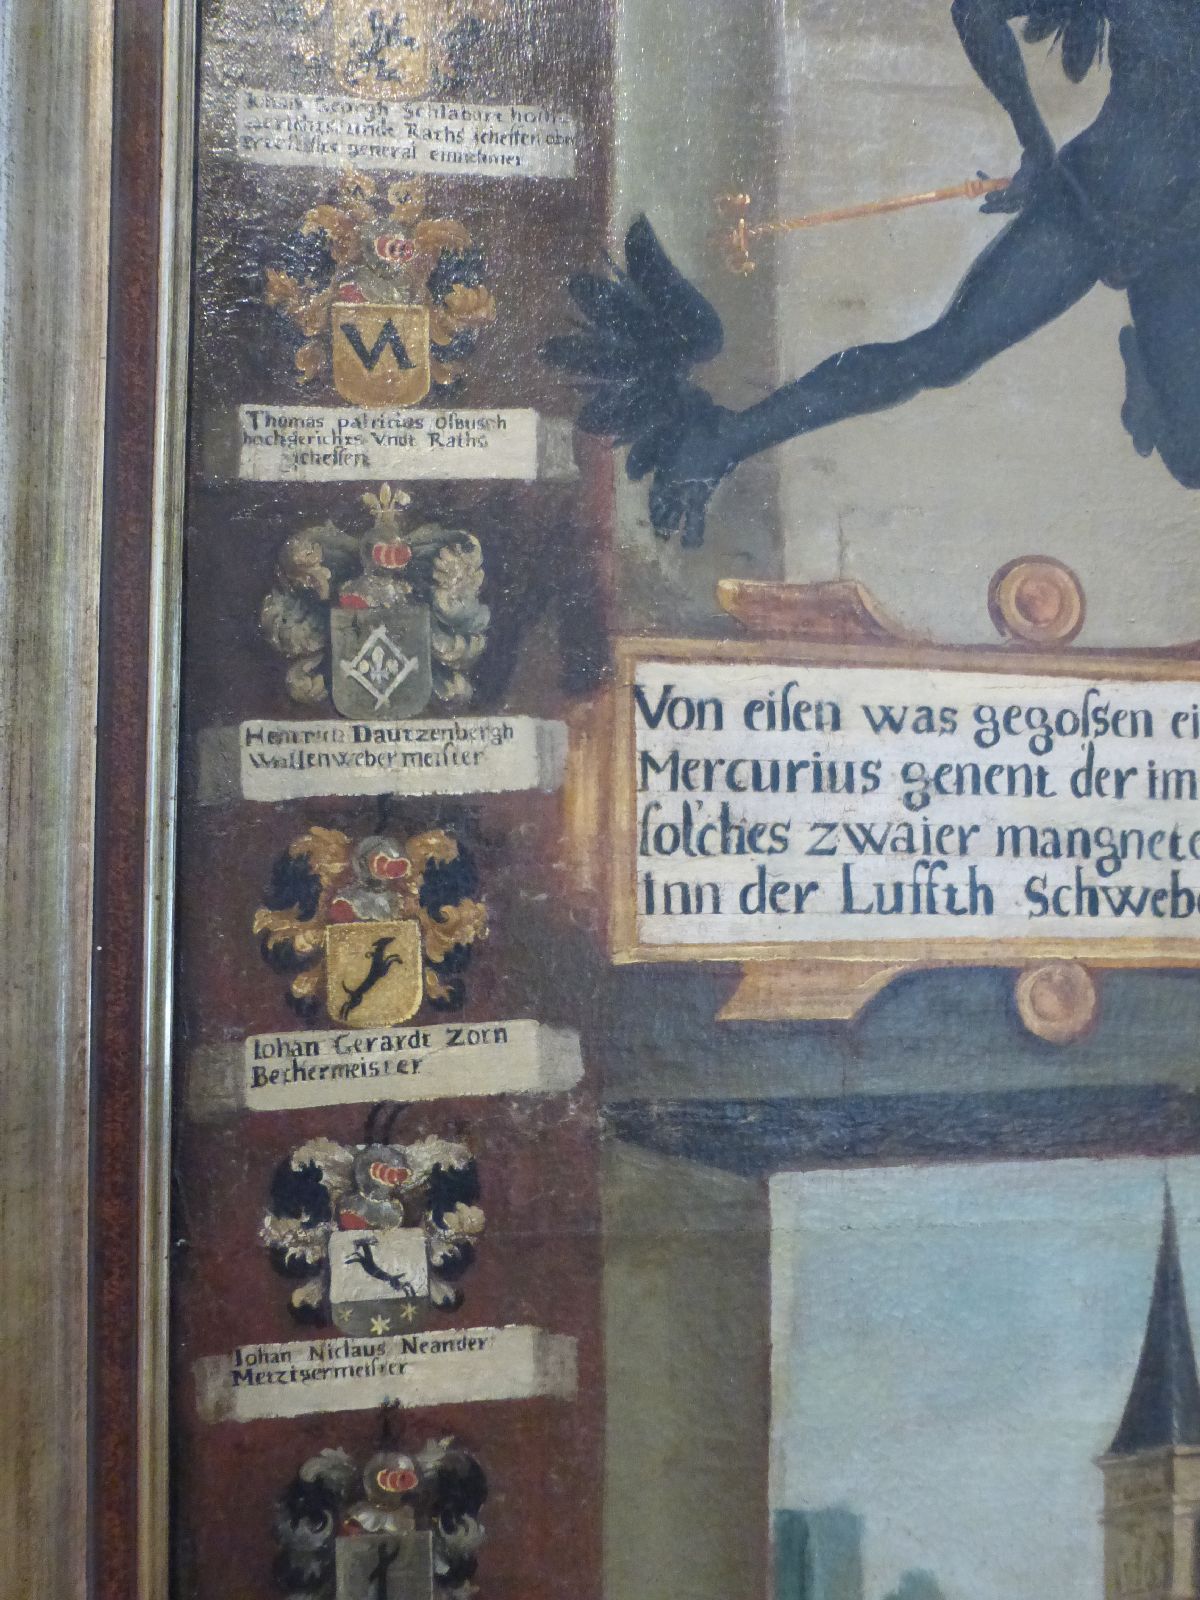 Georgh Schlabart hoch
gerichts unde Raths scheffen ober
general einnehmer
Thomas patricius Osbusch
hochgerichts Vndt Raths
scheffen
Henrich Dautzenbergh
Wullenweber meister
Iohan Gerardt Zorn
Bechermeister
Iohan Niclaus Neander
Metzigermeister
Von eisen was gegossen ei
Mercurius genent der im
solches zwaier mangnete
Inn der Luffth Schweb